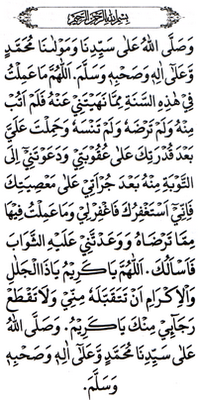 بِسْمِ اللهِ الرَّحْمٰنِ الرَّحِيْمِ
وَصَلَّى اللهُ عَلَى سَيِّدِنَا وَمَوْلَانَا مُحَمَّدٍ
وَّعَلَى اٰلِهٖ وَصَحْبِهٖ وَسَلَّمَ. اَللّٰهُمَّ مَا عَمِلْتُ
فِيْ هٰذِهِ السَّنَةِ مِمَّا نَهَيْتَنِيْ عَنْهُ فَلَمْ اَتُبْ
مِنْهُ وَلَمْ تَرْضَهُ وَلَمْ تَنْسَهُ وَحَلِمْتَ عَلَيَّ
بَعْدَ قُدْرَتِكَ عَلَى عُقُوْبَتِيْ وَدَعَوْتَنِيْ اِلَى
التَّوْبَةِ مِنْهُ بَعْدَ جُرْاَتِيْ عَلَى مَعْصِيَتِكَ
فَاِنِّيْ اَسْتَغْفِرُكَ فَاغْفِرْلِيْ وَمَا عَمِلْتُ فِيْهَا
مِمَّا تَرْضَاهُ وَوَعَدْتَنِيْ عَلَيْهِ الثَّوَابَ
فَاَسْاَلُكَ. اَللّٰهُمَّ يَا كَرِيْمُ يَا ذَاالْجَلَالِ
وَالْاِكْرَامِ اَنْ تَتَقَبَّلَهُ مِنِّيْ وَلَا تَقْطَعْ
رَجَآئِيْ مِنْكَ يَا كَرِيْمُ. وَصَلَّى اللهُ
عَلَى سَيِّدِنَا مُحَمَّدٍ وَّعَلَى اٰلِهٖ وَصَحْبِهٖ
وَسَلَّمَ.